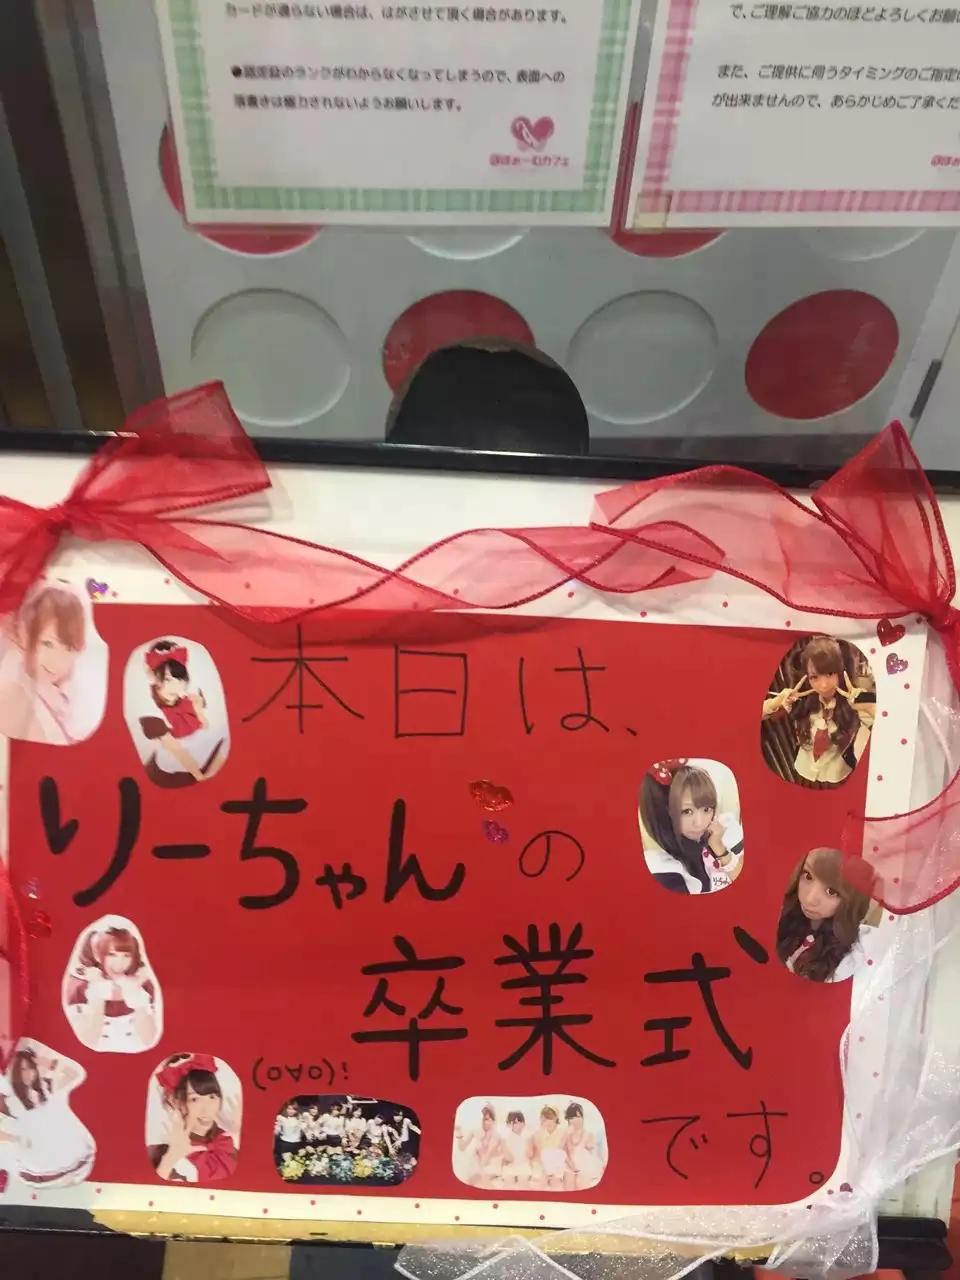 カードが通らない場合は、はがさせて頂く場合があります。
●認定証のランクがわからなくなってしまうので、表面への
落書きは極力されないようお願いします。
@ほぉーむカフェ
で、ご理解ご協力のほどよろしくお願い
また、ご提供に伺うタイミングのご指定
が出来ませんので、あらかじめご了承くだ
@ほぉー
本日は、
りーちゃんの
卒業式
(o∀o)!
です。